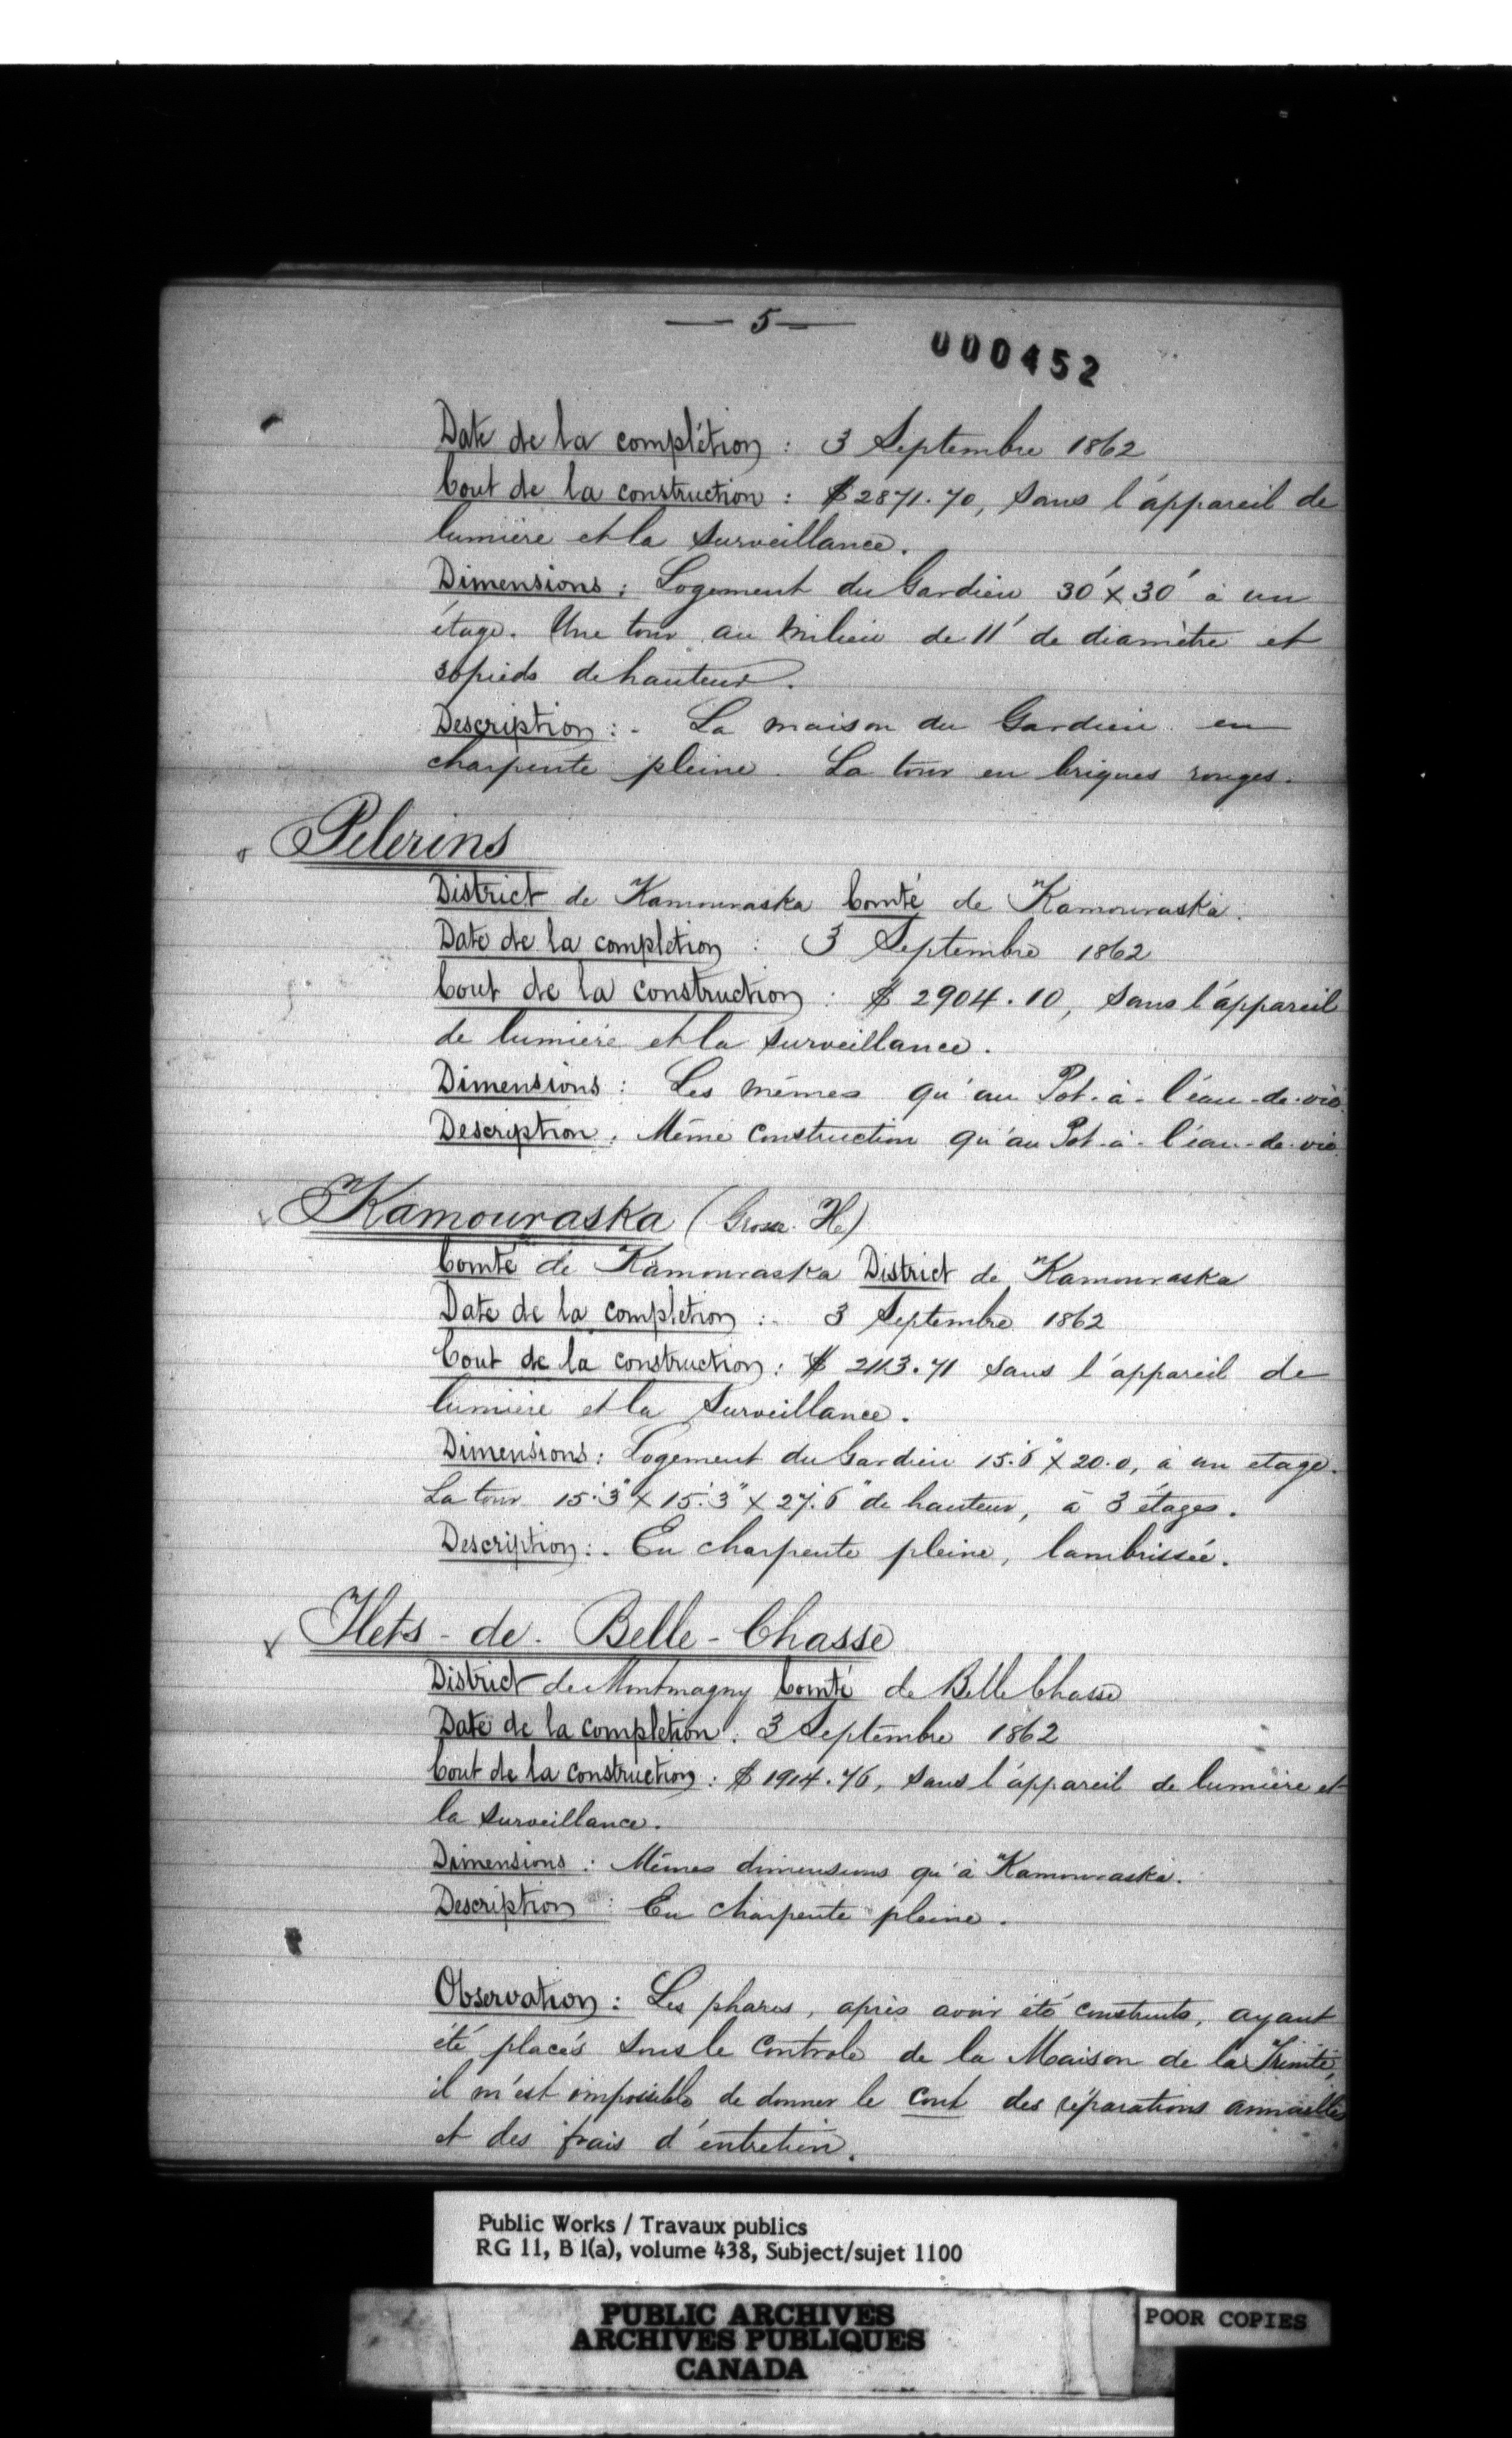 — 5 —
000452
Date de la complétion : 3 Septembre 1862
Cout de la construction : $2871.70, sans l'appareil de
lumière et la surveillance.
Dimensions : Logement du Gardien 30' x 30' à un
étage. Une tour au milieu de 11' de diamètre et
30 pieds de hauteur.
Description : - La maison du Gardien en
charpente pleine. La tour en briques rouges.
Pelerins
District de Kamouraska Comté de Kamouraska.
Date de la completion : 3 Septembre 1862
Cout de la construction : $ 2904.10, sans l'appareil
de lumière et la surveillance.
Dimensions : Les mêmes qu'au Pot-à-l'eau-de-vie
Description : Même construction qu'au Pot-à-l'eau-de-vie
Kamouraska (Grosse Ile)
Comté de Kamouraska District de Kamouraska
Date de la completion : - 3 Septembre 1862
Cout de la construction : $ 2113.71 sans l'appareil de
lumière et la surveillance.
Dimensions : Logement du Gardien 15'.6" x 20.0, à un etage.
La tour 15'.3" x 15'.3" x 27'.6" de hauteur, à 3 étages.
Description : - En charpente pleine, lambrissée.
Ilets-de-Belle-Chasse
District de Montmagny Comté de Belle Chasse
Date de la completion : 3 Septembre 1862
Cout de la construction : $ 1914.76, sans l'appareil de lumière et
la surveillance.
Dimensions : Mêmes dimensions qu'à Kamouraska.
Description : En charpente pleine.
Observation : Les phares, après avoir été construits, ayant
été placés sous le controle de la Maison de la Trinité,
il m'est impossible de donner le cout des réparations annuelles
et des frais d'entretien.
Public Works / Travaux publics
RG 11, B 1(a), volume 438, Subject/sujet 1100
PUBLIC ARCHIVES
ARCHIVES PUBLIQUES
CANADA
POOR COPIES